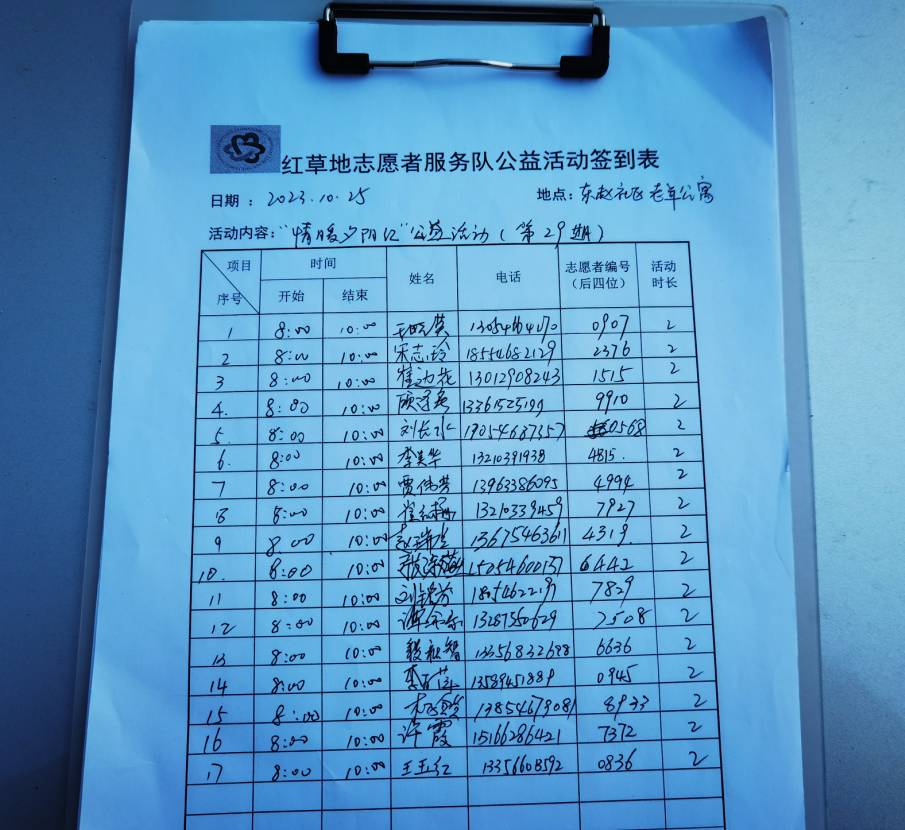 红草地志愿者服务队公益活动签到表
日期：2023.10.25 地点：东赵社区老年公寓
活动内容："情暖夕阳红"公益活动（第29期）
项目 时间 姓名 电话 志愿者编号 活动
序号 开始 结束 （后四位） 时长
1 8:00 10:00 0907 2
2 8:00 10:00 宋志玲 18554682129 2376 2
3 8:00 10:00 13012908243 1515 2
4. 8:00 10:00 9910 2
5. 8:00 10:00 刘长水 0568 2
6. 8:00 10:00 李美华 4815. 2
7 8:00 10:00 贾伟芳 13963386095 4994 2
8 8:00 10:00 13210339459 7927 2
9 8:00 10:00 13675463611 4319. 2
10. 8:00 10:00 15054600137 6442 2
11 8:00 10:00 7829 2
12 8:00 10:00 13287550629 2508 2
13 8:00 10:00 13356832688 6636 2
14 8:00 10:00 13589451889 0945 2
15 8:00 10:00 13854679081 8933 2
16 8:00 10:00 许霞 15166286421 7372 2
17 8:00 10:00 王玉红 13356608592 0836 2